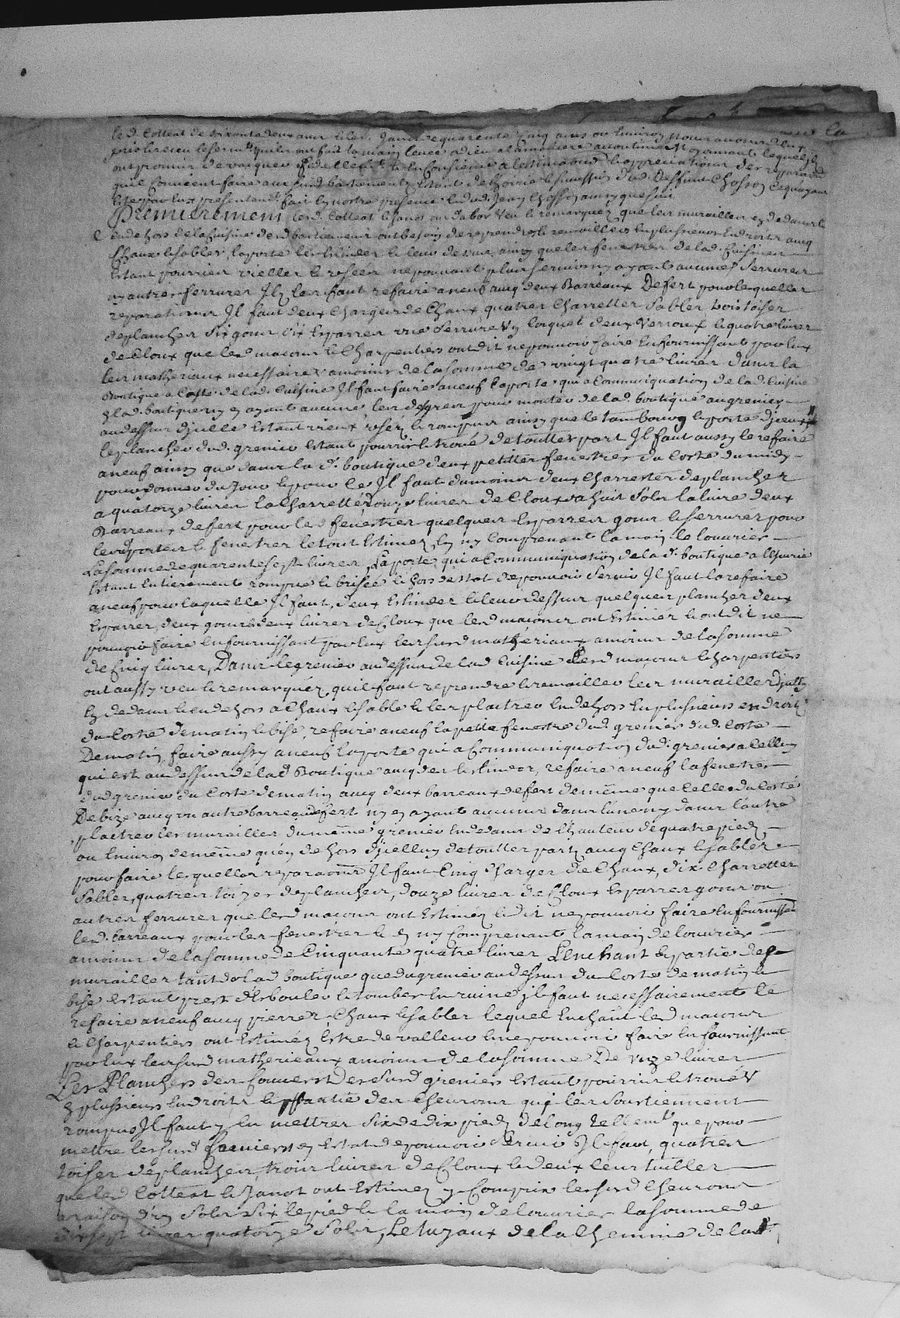 led. Cottent de soixante deux ans et led. Janot de quarente cinq ans ou environ
ont promis de vacquer fidellement
Premierement lesd. Cottent et Janot ont dabor veu et remarquez que les murailles en dedans et
en dehors de la Cuisine dud. bastiment ont besoin de reprendre et remailler en plusieurs endroits avec
Chaux et sables, la porte
estant pourrie vieille et rosée ne pouvant plus fermer ny ayant aucunes serrures
ny autres ferrures Il les faut refaire a neuf avec deux Barreaux de fert pour lesquelles
reparations Il faut deux Charges de Chaux quatre Charrettes sables trois toises
de planches six gons six esparres une serrure un loquet deux verroux et quatre livres
de Cloux que lesd. macons et Charpentiers ont dit ne pouvoir faire en fournissant par eux
les matheriaux necessaires a moins de la somme de vingt quatre livres dans la
Boutique a Costé de lad. Cuisine Il faut faire a neuf la porte qui a Communiquation de lad. Cuisine
a lad. boutique ny en ayant aucune les degrés pour monter de lad. boutique au grenier
au dessus d'jcelle estant vieux rosez et rompus ainsy que le tambourg et porte d'jceux
le plancher dud. grenier estant pourris et troué de touttes part Il faut aussy le refaire
a neuf ainsy que dans lad. boutique deux petittes fenestres du Costé du midy
pour donner du jour et pour ce Il faut du moins deux Charrettes de planches
a quatorze livres la Charrettée douze livres de Cloux a huit sols la livre deux
Barreaux de fert pour lesd. fenestres quelques esparres gons et serrures pour
lesd. portes et fenetres le tout estimez en ny Comprenant la main de louvrier
La somme de quarente sept livres, La porte qui a Communiquation de lad. boutique a l'Escurie
estant entierement rompue et brisée et hors destat de pouvoir servir Il faut la refaire
a neuf pour laquelle Il faut, deux estindes et leur dessus quelques planches deux
esparres, deux gons et deux livres de Cloux que lesd. macons ont estimés et ont dit ne
pouvoir faire en fournissant par eux lesdsusd. matheriaux a moins de la somme
de Cinq livres, Dans le grenier au dessus de lad. Cuisine lesd. macons et Charpentiers
ont aussy veu et remarquéz quil faut reprendre et remailler les murailles d'jcelluy
en dedans et en dehors a Chaux et sable et les plaitrer en dehors en plusieurs endroits
du Costé de matin et bise, refaire a neuf la petite fenestre dud. grenier dud. Costé
De matin, faire aussy a neuf la porte qui a Communiquation dud. grenier a Celluy
qui est au dessus de lad. Boutique avec des estindes, refaire a neuf la fenestre
dud. grenier du Costé de matin avec deux barreaux de fert de mesme que Celle du Costé
De bize avec un autre barreau de fert ny en ayant aucuns dans l'une ny dans l'autre
plaitrer les murailles du même grenier en dedans de l'hauteur de quatre pieds
ou environ de meme qu'en dehors d'jcelluy de touttes parts avec Chaux et sables
pour faire lesquelles reparations Il faut Cinq Charges de Chaux, dix Charrettes
sables, quatres toizes de planches, douze livres de Cloux esparres gons ou
autres ferrures que lesd. macons ont estimés et dit ne pouvoir faire en fournissant
lesd. barreaux pour les fenestres et en ny Comprenant la main de louvrier
a moins de la somme de Cinquante quatre livres L'enchant et partie des
murailles tant de lad. boutique que du grenier au dessus du Costé de matin et
bise estant prest d'esbouler et tomber en ruine Il faut necessairement le
refaire a neuf avec pierres Chaux et sables lequel enchant lesd. macons
et Charpentiers ont estimez estre de valleur et ne pouvoir faire en fournissant
par eux lesdsusd. matherieaux a moins de la somme De onze livres
Les Planches des Couverts desdsusd. greniers estant pourries et trouées
en plusieurs endroits et partie des Cheurons qui les soustiennent
rompus Il faut y en mettre six de dix pieds de long tellemt. que pour
mettre lesdsusd. en estat de pouvoir servir Il faut quatres
toises de planches, trois livres de Cloux et deux
que lesd. Cottent et Janot ont estimez y Compris lesdsusd. cheurons
a raison d'un sols six le pied et la main de louvrier la somme de
dixsept livres quatorze sols, Le tuyaux de la Cheminée de lad.